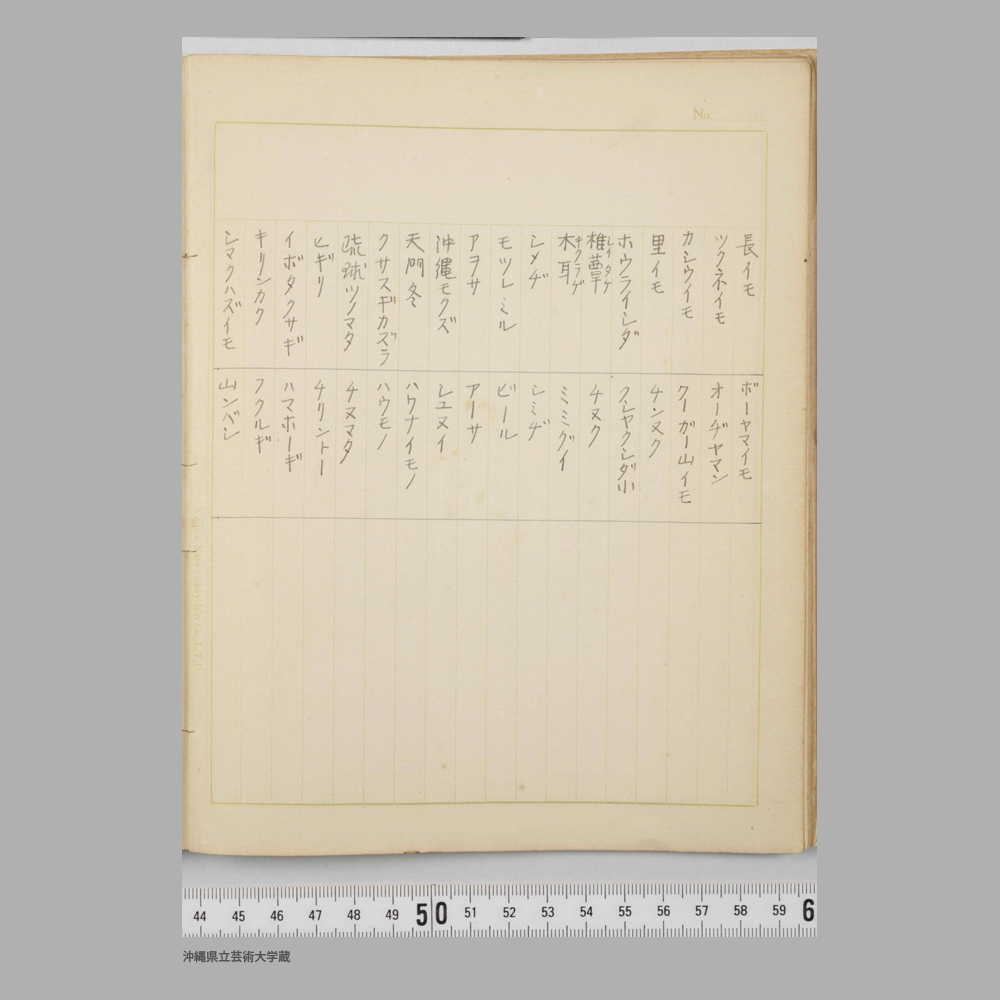 No.
長イモ ボーヤマイモ
ツクネイモ オーヂヤマン
カシウイモ クーガー山イモ
里イモ チンヌク
ホウライシダ クシヤクシダ小
椎蕈 シイタケ チヌク
木耳 キクラゲ ミミグイ
シメヂ シミヂ
モツレミル ビール
アヲサ アーサ
沖縄モクズ シユヌイ
天門冬 ハウナイモノ
クサスギカズラ ハウモノ
琉球ツノマタ チヌマタ
ヒギリ チリントー
イボタクサギ ハマホーギ
キリンカク フクルギ
シマクハズイモ 山ンバシ
44 45 46 47 48 49 50 51 52 53 54 55 56 57 58 59 6
沖縄県立芸術大学蔵